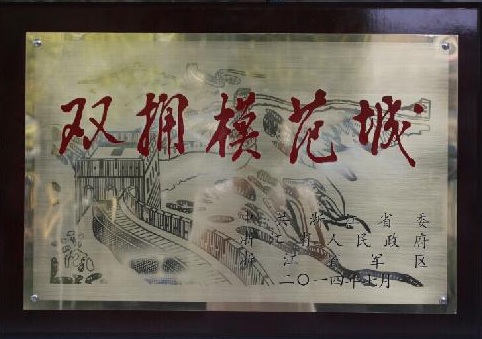 双拥模范城
中共浙江省委
浙江省人民政府
浙江省军区
二〇一四年七月